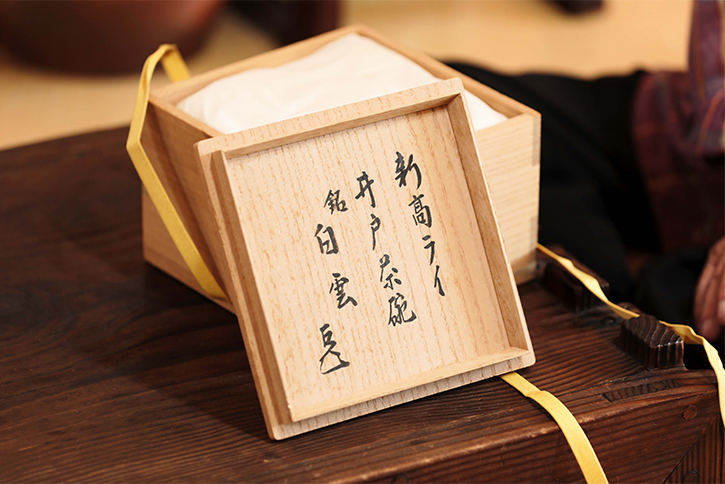 新高ライ
井戸茶碗
銘
白雲